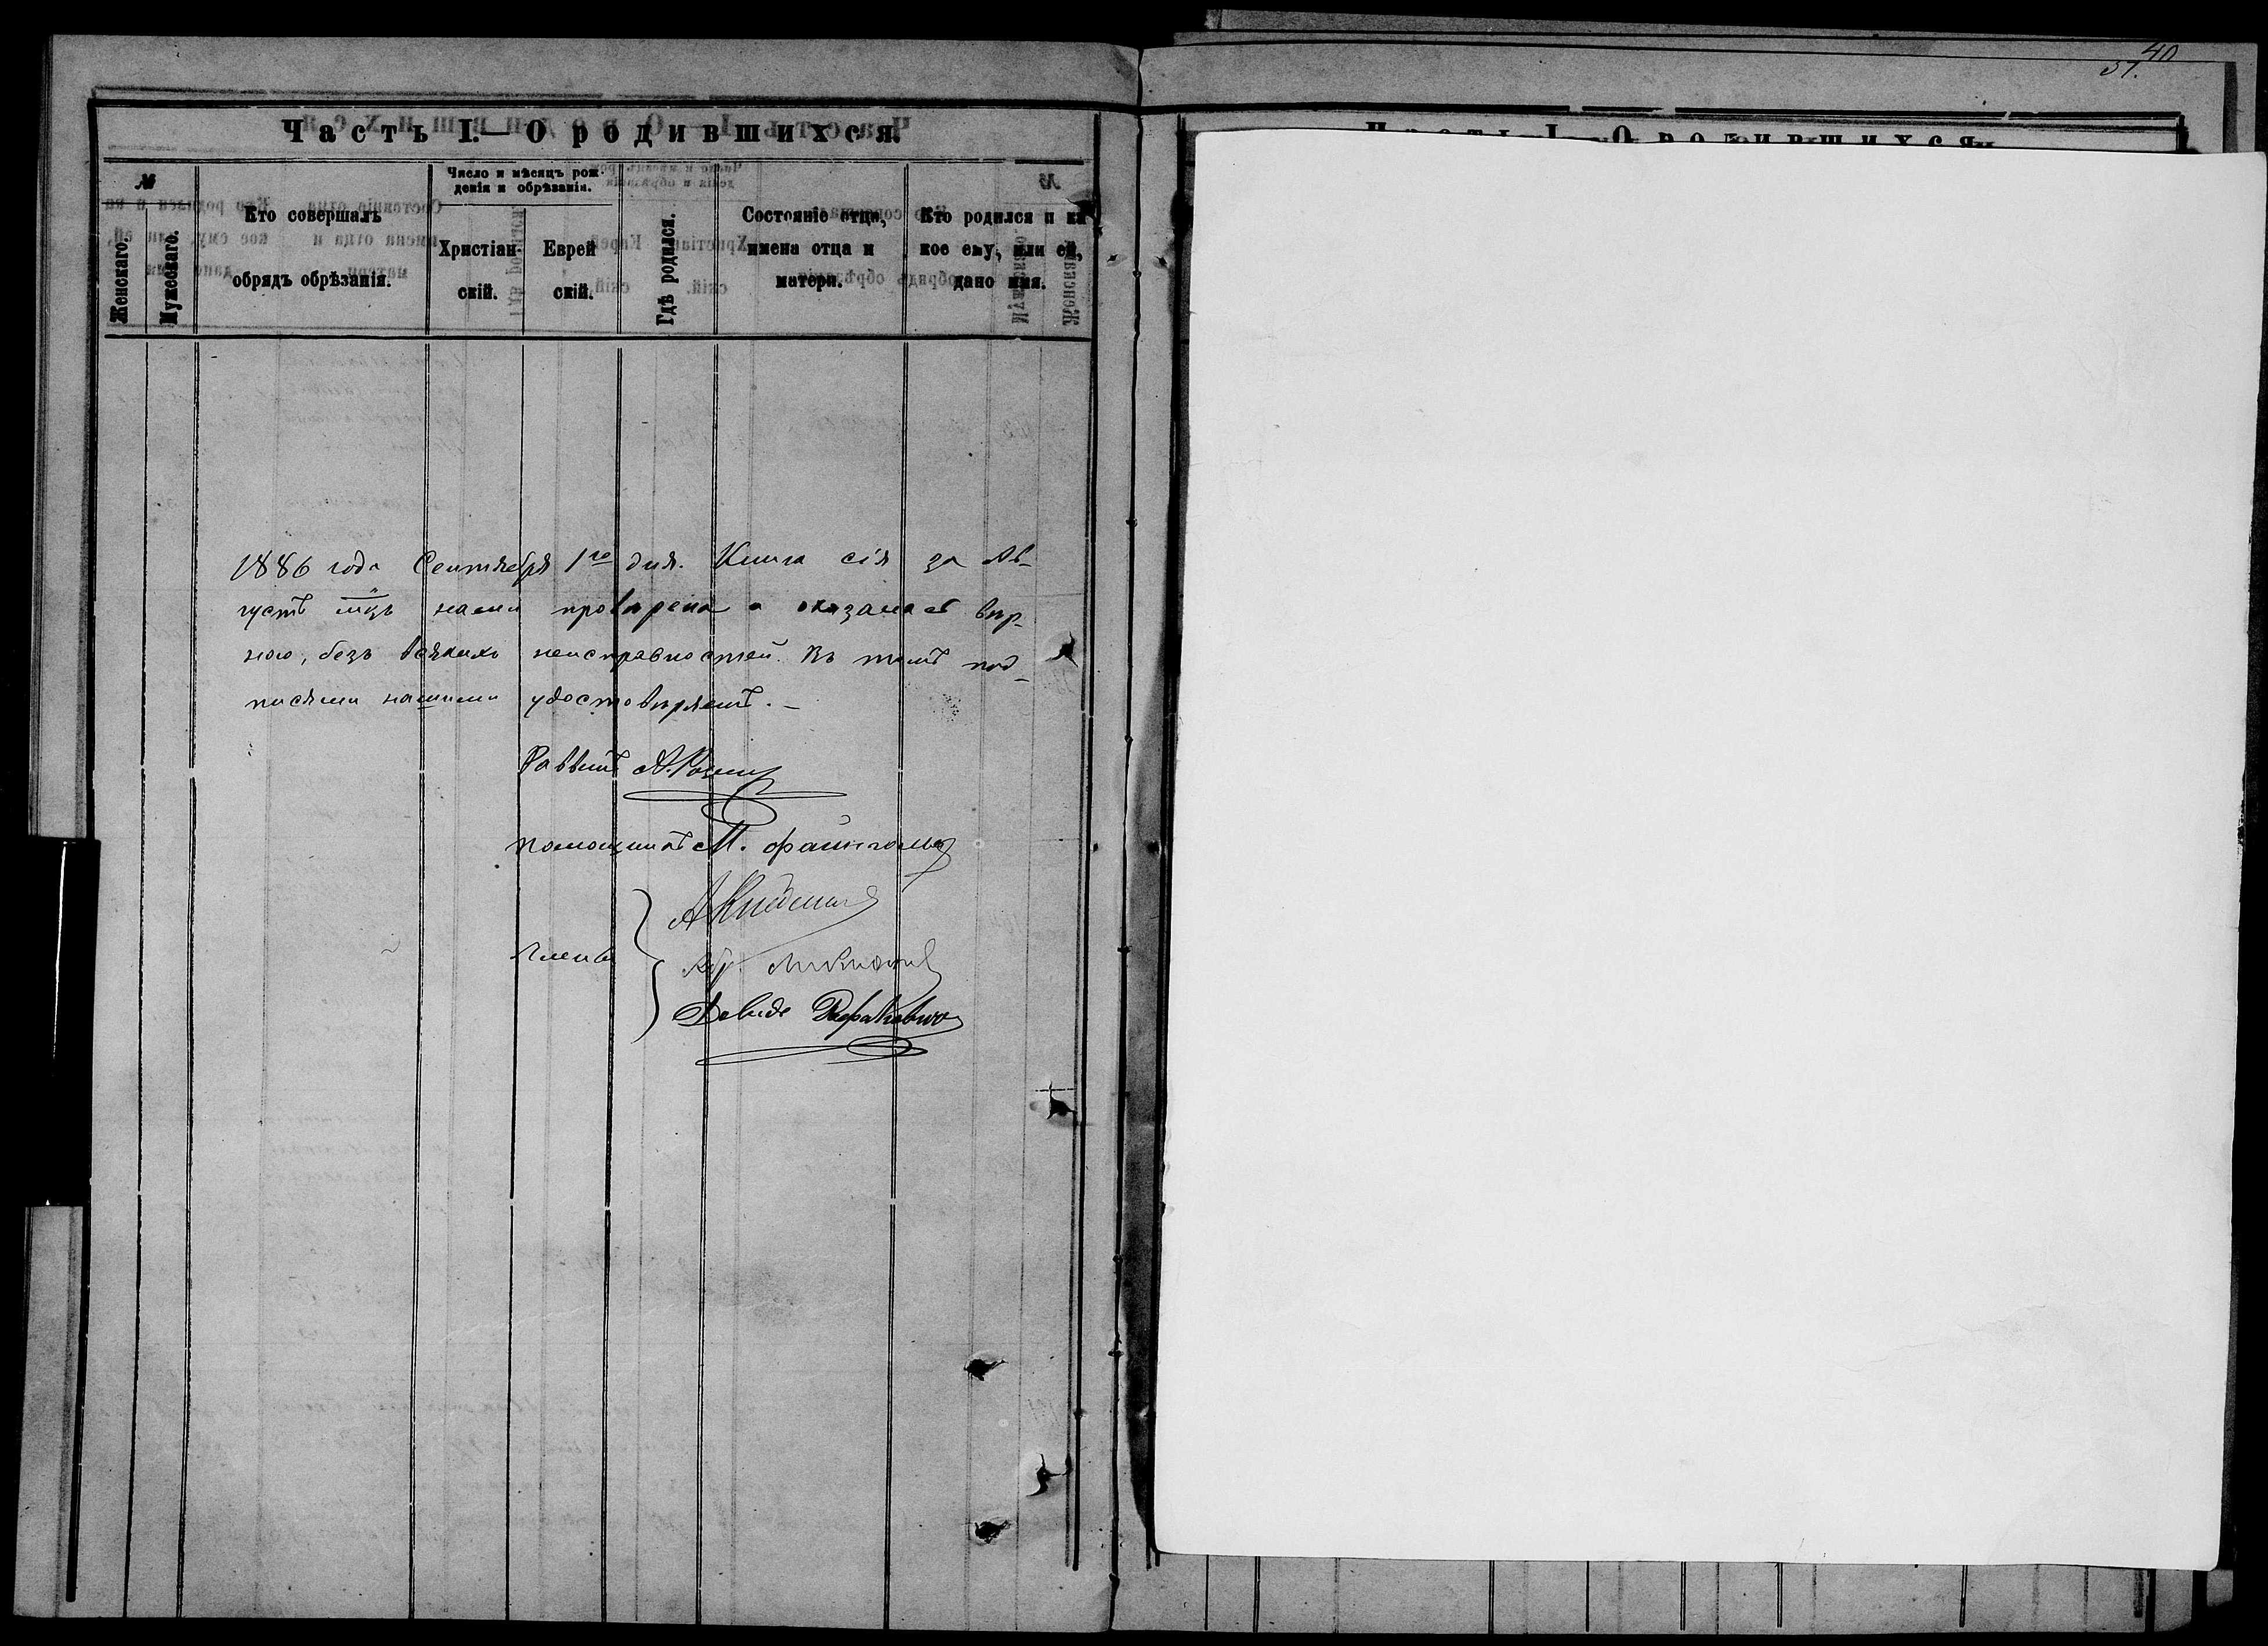 40
37.
Часть I.—О родившихся.
№
Женскаго.
Мужескаго.
Кто совершалъ
обрядъ обрѣзанія.
Число и мѣсяцъ рож-
денія и обрѣзанія.
Христіан-
скій.
Еврей
скій.
Гдѣ родился.
Состояніе отца,
имена отца и
матери.
Кто родился и ка
кое ему, или ей,
дано имя.
Часть I.—О родившихся.
1886 года Сентября 1го дня. Книга сія за Ав-
густъ мцъ нами провѣрена и оказалась вѣр-
ною, безъ всякихъ неисправностей. Въ томъ под-
писями нашими удостовѣряемъ. —
Раввинъ А.
Помощникъ М.
Члены
Давидъ